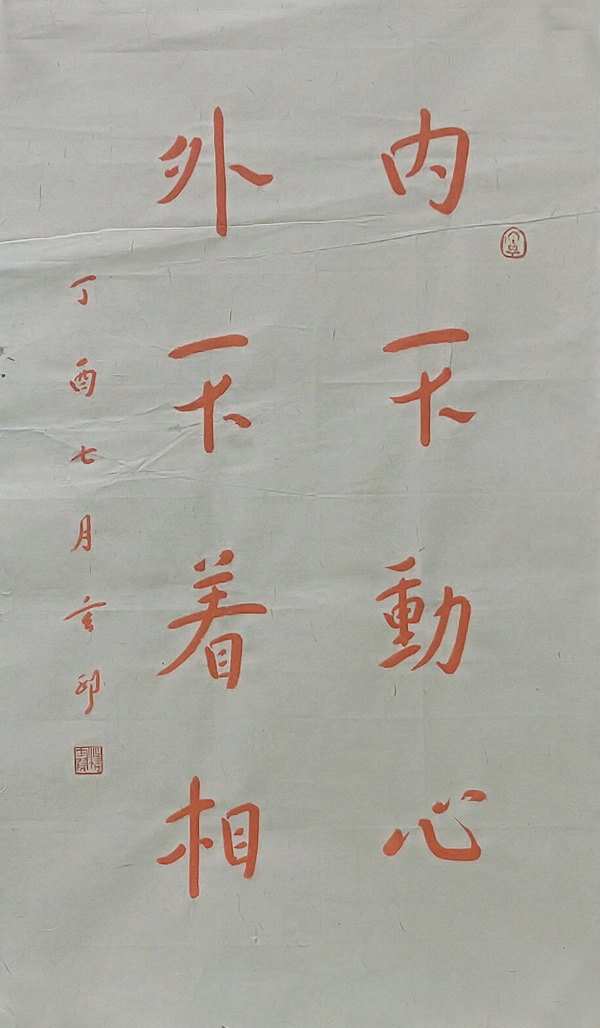 内不動心
外不着相
丁酉七月